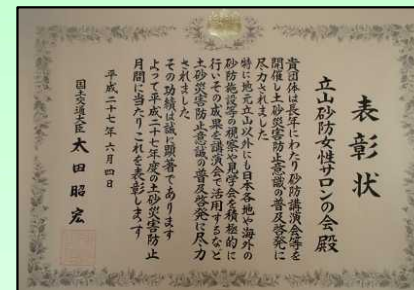 表彰状
立山砂防女性サロンの会殿
貴団体は長年にわたり砂防講演会等を
開催し土砂災害防止意識の普及啓発に
尽力されました
特に地元立山以外にも日本各地や海外の
砂防施設等の視察や見学会を積極的に
行いその成果を講演会で活用するなど
土砂災害防止意識の普及啓発に尽力
されました
その功績は誠に顕著であります
よって平成二十七年度の土砂災害防止
月間に当たりこれを表彰します
平成二十七年六月四日
国土交通大臣 太田昭宏